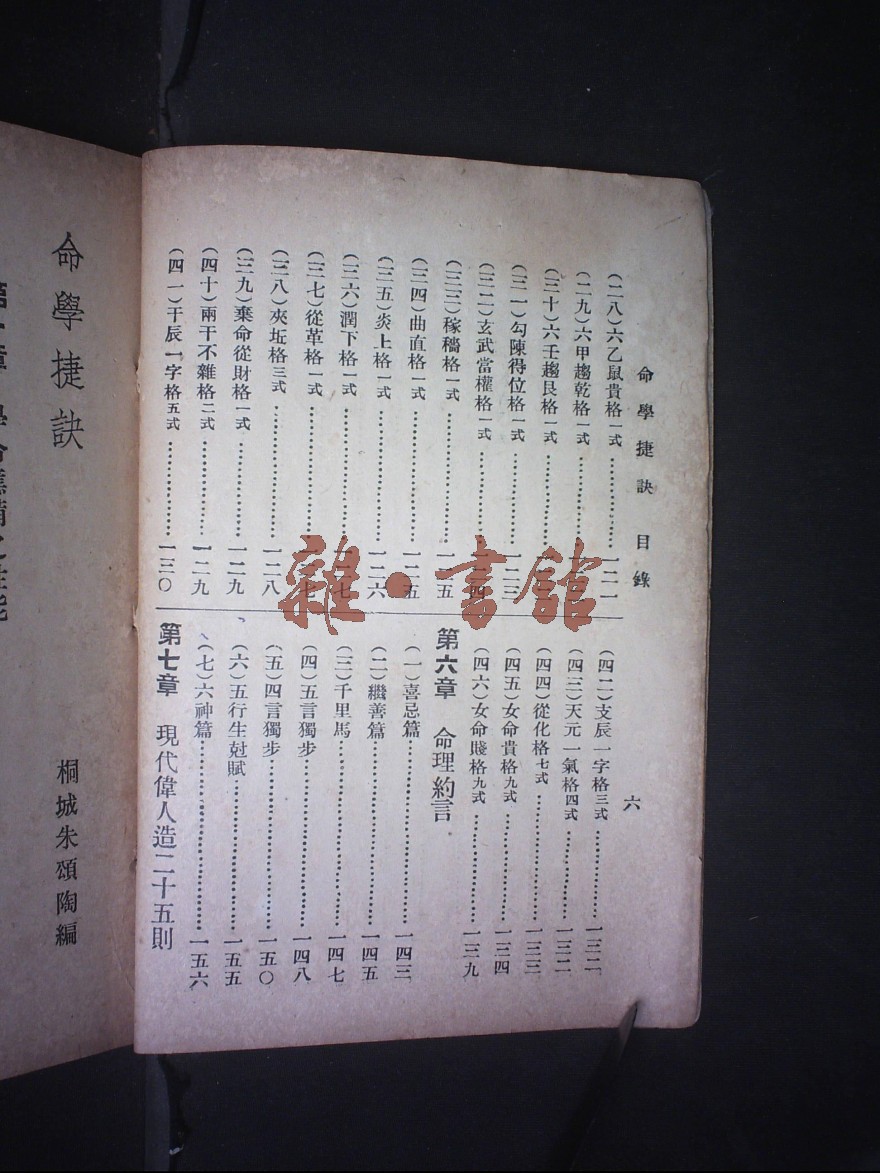 命學捷訣 目錄
六
(二八)六乙鼠貴格一式……一二一
(二九)六甲趨乾格一式……
(三十)六壬趨艮格一式……
(三一)勾陳得位格一式……一二三
(三二)玄武當權格一式……四
(三三)稼穡格一式……一二五
(三四)曲直格一式……一二五
(三五)炎上格一式……一二六
(三六)潤下格一式……七
(三七)從革格一式……七
(三八)夾坵格三式……一二八
(三九)棄命從財格一式……一二九
(四十)兩干不雜格二式……一二九
(四一)干辰一字格五式……一三〇
(四二)支辰一字格三式……一三二
(四三)天元一氣格四式……一三二
(四四)從化格七式……一三三
(四五)女命貴格九式……一三四
(四六)女命賤格九式……一三九
第六章 命理約言
(一)喜忌篇……一四三
(二)繼善篇……一四五
(三)千里馬……一四七
(四)五言獨步……一四八
(五)四言獨步……一五〇
(六)五行生尅賦……一五五
(七)六神篇……一五六
第七章 現代偉人造二十五則
命學捷訣
桐城朱頌陶編
雜·書館